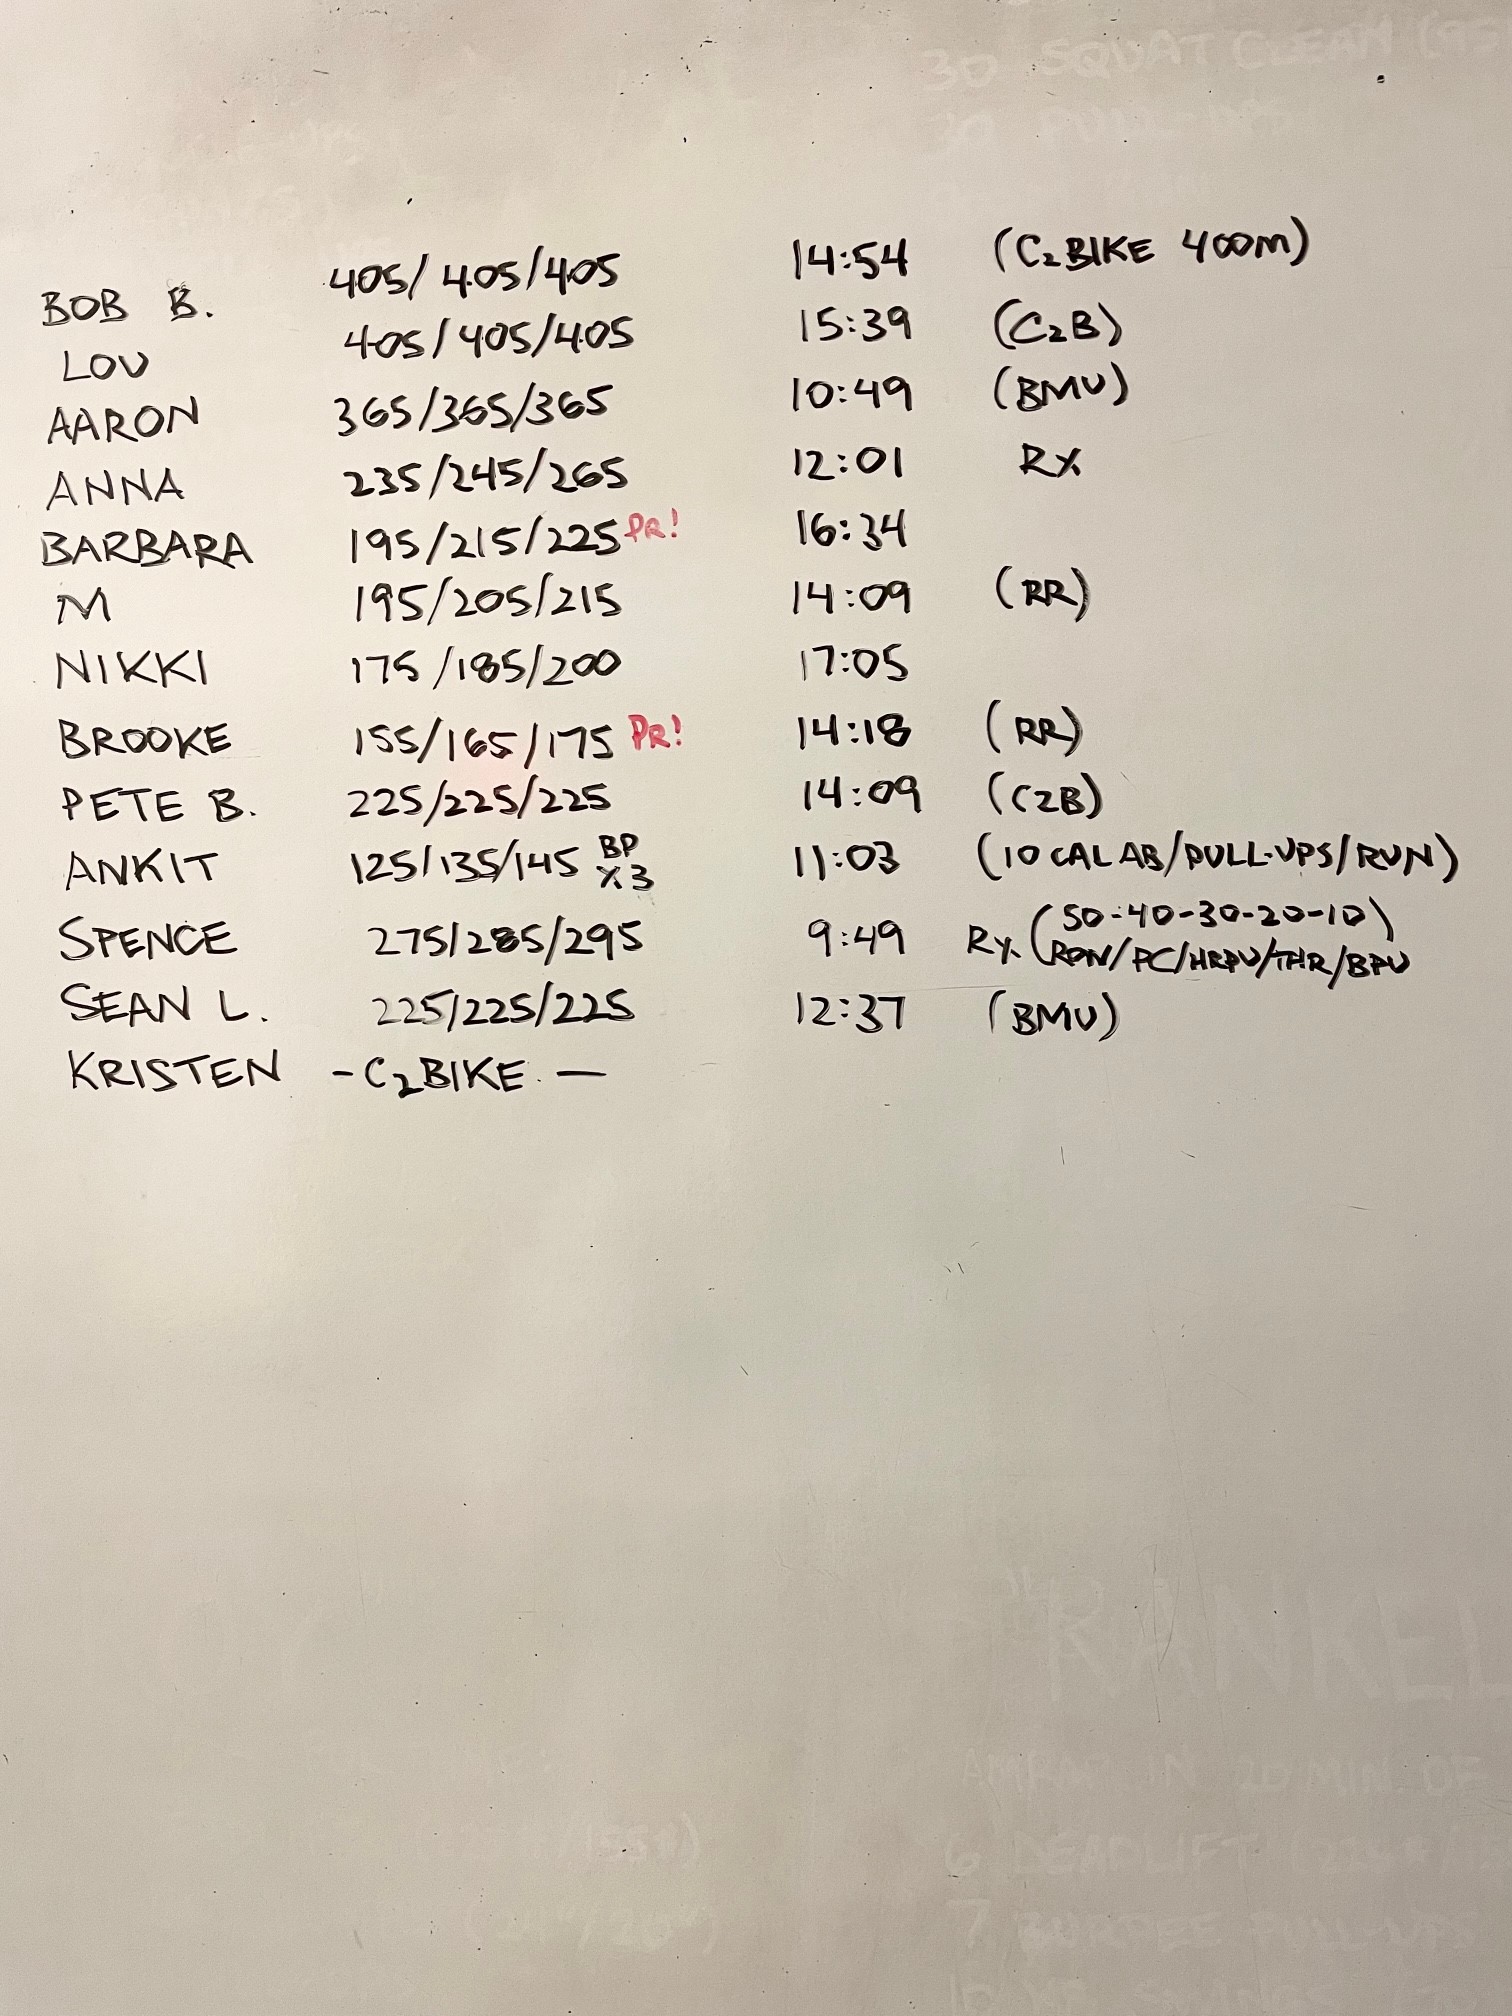 30 SQUAT CLEAN (95
30 PULL-UPS
BOB B. 405/405/405 14:54 (C2BIKE 400M)
LOU 405/405/405 15:39 (C2B)
AARON 365/365/365 10:49 (BMU)
ANNA 235/245/265 12:01 RX
BARBARA 195/215/225 PR! 16:34
M 195/205/215 14:09 (RR)
NIKKI 175/185/200 17:05
BROOKE 155/165/175 PR! 14:18 (RR)
PETE B. 225/225/225 14:09 (C2B)
ANKIT 125/135/145 BP X3 11:03 (10 CAL AB/PULL-UPS/RUN)
SPENCE 275/285/295 9:49 Rx (50-40-30-20-10)
RUN/PC/HRPU/THR/BPU
SEAN L. 225/225/225 12:37 (BMU)
KRISTEN - C2BIKE. —
"RANKEL
AMRAP IN 20 MIN. OF
6 DEADLIFT (225#/15
7 BURPEE PULL-UPS